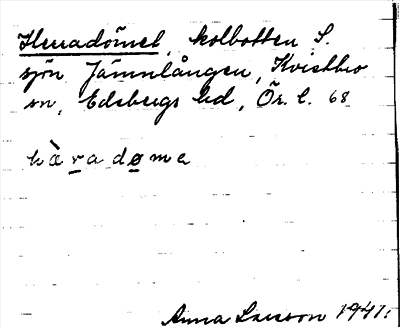 Herradömet, kolbotten S.
sjön Jämnlången, Kvistbro
sn, Edsbergs hd, Ör. l. 68
hàradøme
Anna Larsson 1941.